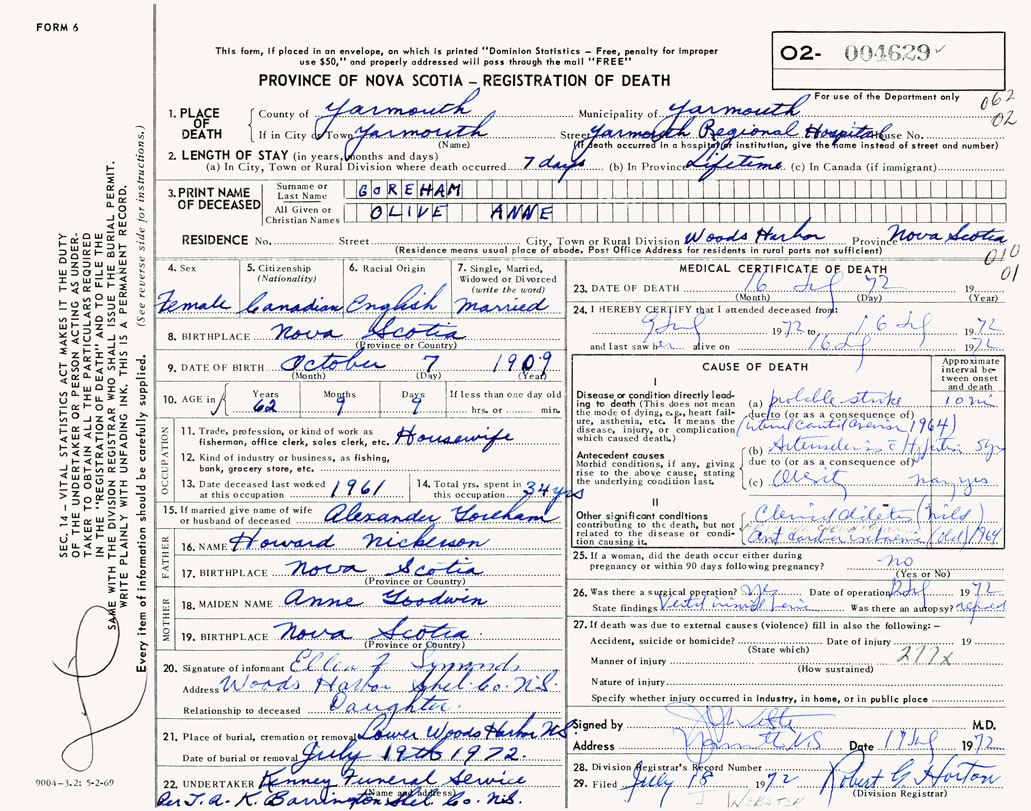 FORM 6
This form, if placed in an envelope, on which is printed "Dominion Statistics – Free, penalty for improper
use $50," and properly addressed will pass through the mail "FREE"
PROVINCE OF NOVA SCOTIA – REGISTRATION OF DEATH
O2- 004629
For use of the Department only
062
02
1. PLACE OF DEATH County of Yarmouth Municipality of Yarmouth
If in City or Town Yarmouth Street Yarmouth Regional Hospital House No.
(Name) (If death occurred in a hospital or institution, give the name instead of street and number)
2. LENGTH OF STAY (in years, months and days)
(a) In City, Town or Rural Division where death occurred 7 days (b) In Province Lifetime (c) In Canada (if immigrant)
3. PRINT NAME OF DECEASED Surname or Last Name GOREHAM
All Given or Christian Names OLIVE ANNE
RESIDENCE No. Street City, Town or Rural Division Woods Harbor Province Nova Scotia
(Residence means usual place of abode. Post Office Address for residents in rural parts not sufficient)
010
01
4. Sex 5. Citizenship (Nationality) 6. Racial Origin 7. Single, Married, Widowed or Divorced (write the word)
Female Canadian English Married
8. BIRTHPLACE Nova Scotia
(Province or Country)
9. DATE OF BIRTH October 7 1909
(Month) (Day) (Year)
10. AGE in Years Months Days If less than one day old
62 9 9 hrs. or min.
OCCUPATION
11. Trade, profession or kind of work as fisherman, office clerk, sales clerk, etc. Housewife
12. Kind of industry or business, as fishing, bank, grocery store, etc.
13. Date deceased last worked at this occupation 1961 14. Total yrs. spent in this occupation 34 yrs
15. If married give name of wife or husband of deceased Alexander Goreham
FATHER
16. NAME Howard Nickerson
17. BIRTHPLACE Nova Scotia
(Province or Country)
MOTHER
18. MAIDEN NAME Anne Goodwin
19. BIRTHPLACE Nova Scotia
(Province or Country)
20. Signature of informant Ellen F Symonds
Address Woods Harbor Shel. Co. N.S.
Relationship to deceased Daughter
21. Place of burial, cremation or removal Lower Woods Harbor N.S.
Date of burial or removal July 19th 1972
22. UNDERTAKER Kenney Funeral Service
(Name and address)
Per J.A.K. Barrington Shel. Co. N.S.
MEDICAL CERTIFICATE OF DEATH
23. DATE OF DEATH 16 Jul 72 19
(Month) (Day) (Year)
24. I HEREBY CERTIFY that I attended deceased from:
9 Jul 1972 to 16 Jul 1972
and last saw her alive on 16 Jul 1972
CAUSE OF DEATH
Approximate interval between onset and death
I
Disease or condition directly leading to death (This does not mean the mode of dying, e.g., heart failure, asthenia, etc. It means the disease, injury, or complication which caused death.)
(a) probable stroke 10 min
due to (or as a consequence of)
1964)
Antecedent causes
Morbid conditions, if any, giving rise to the above cause, stating the underlying condition last.
(b) 5 yrs
due to (or as a consequence of)
(c) Obesity many yrs
II
Other significant conditions contributing to the death, but not related to the disease or condition causing it.
(mild)
(old) 1964
25. If a woman, did the death occur either during pregnancy or within 90 days following pregnancy? no
(Yes or No)
26. Was there a surgical operation? yes Date of operation 12 Jul 1972
State findings Was there an autopsy? refused
27. If death was due to external causes (violence) fill in also the following:–
Accident, suicide or homicide? Date of injury 19
(State which)
Manner of injury 277x
(How sustained)
Nature of injury
Specify whether injury occurred in industry, in home, or in public place
Signed by M.D.
Address Yarmouth N.S. Date 17 Jul 1972
28. Division Registrar's Record Number
29. Filed July 18 1972 Robert G. Horton
(Division Registrar)
J. WEBSTER
SEC. 14 – VITAL STATISTICS ACT MAKES IT THE DUTY
OF THE UNDERTAKER OR PERSON ACTING AS UNDER-
TAKER TO OBTAIN ALL THE PARTICULARS REQUIRED
IN THE "REGISTRATION OF DEATH" AND TO FILE THE
SAME WITH THE DIVISION REGISTRAR WHO SHALL ISSUE THE BURIAL PERMIT.
WRITE PLAINLY WITH UNFADING INK. THIS IS A PERMANENT RECORD.
Every item of information should be carefully supplied. (See reverse side for instructions.)
9004–3.2: 5-2-69